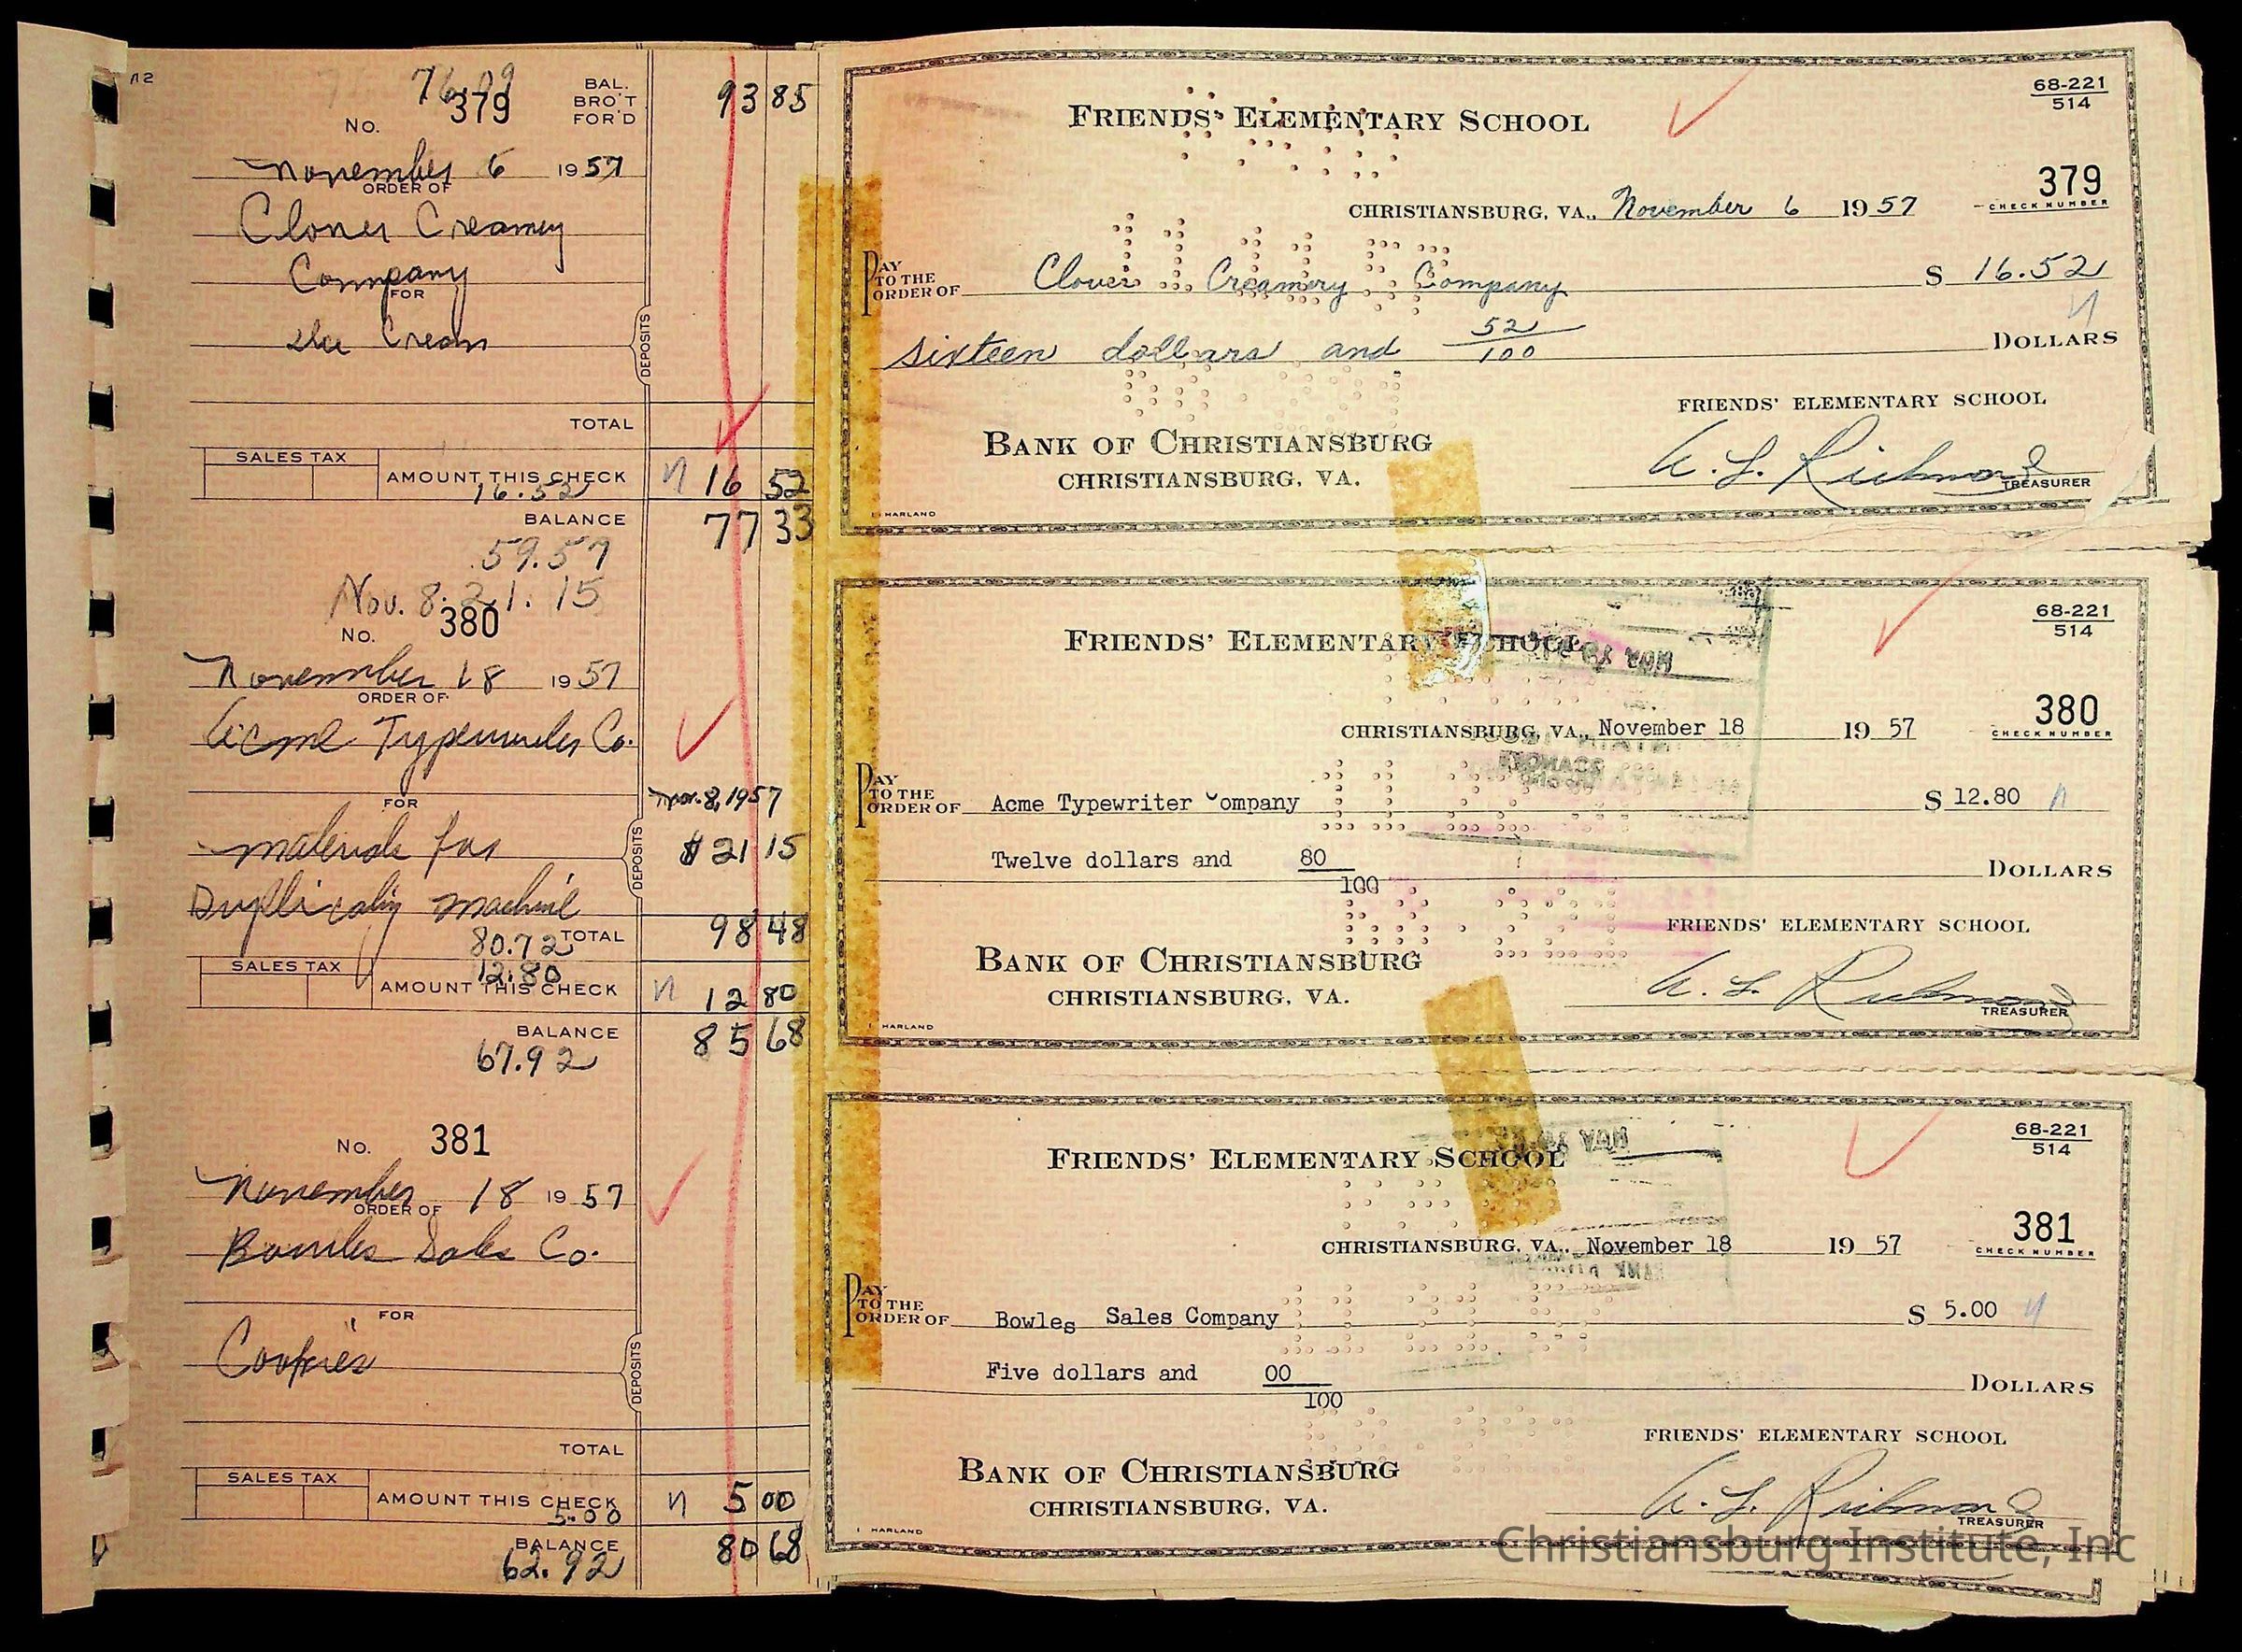 76.09
No. 379
BAL. BRO'T FOR'D
93 85
November 6 1957
ORDER OF
Clover Creamey
Company
FOR
Ice Cream
DEPOSITS
TOTAL
SALES TAX
AMOUNT THIS CHECK
16.52
16 52
BALANCE
77 33
59.57
Nov. 8. 21.15
No. 380
November 18 1957
ORDER OF
Acme Typewriter Co.
FOR
Nov. 8, 1957
materials for
$ 21 15
DEPOSITS
Duplicating machine
80.72 TOTAL
98 48
SALES TAX
12.80
AMOUNT THIS CHECK
12 80
BALANCE
85 68
67.92
No. 381
November 18 1957
ORDER OF
Bowles Sales Co.
FOR
Cookies
DEPOSITS
TOTAL
SALES TAX
AMOUNT THIS CHECK
5.00
5 00
BALANCE
80 68
62.92
FRIENDS' ELEMENTARY SCHOOL
68-221
514
379
CHECK NUMBER
CHRISTIANSBURG, VA., November 6 1957
PAY TO THE ORDER OF Clover Creamery Company $ 16.52
sixteen dollars and 52/100 DOLLARS
FRIENDS' ELEMENTARY SCHOOL
BANK OF CHRISTIANSBURG
CHRISTIANSBURG, VA.
A. L. Richmond
TREASURER
HARLAND
FRIENDS' ELEMENTARY SCHOOL
68-221
514
380
CHECK NUMBER
CHRISTIANSBURG, VA., November 18 1957
PAY TO THE ORDER OF Acme Typewriter Company $ 12.80
Twelve dollars and 80/100 DOLLARS
FRIENDS' ELEMENTARY SCHOOL
BANK OF CHRISTIANSBURG
CHRISTIANSBURG, VA.
A. L. Richmond
TREASURER
HARLAND
FRIENDS' ELEMENTARY SCHOOL
68-221
514
381
CHECK NUMBER
CHRISTIANSBURG, VA., November 18 1957
PAY TO THE ORDER OF Bowles Sales Company $ 5.00
Five dollars and 00/100 DOLLARS
FRIENDS' ELEMENTARY SCHOOL
BANK OF CHRISTIANSBURG
CHRISTIANSBURG, VA.
A. L. Richmond
TREASURER
HARLAND
Christiansburg Institute, Inc